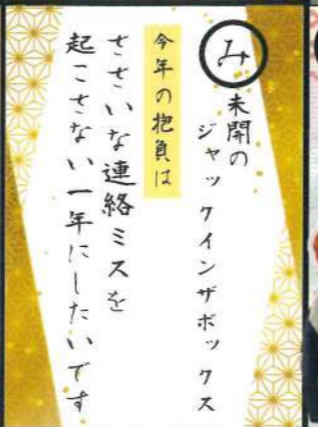 み
未開の
ジャックインザボックス
今年の抱負は
ささいな連絡ミスを
起こさない一年にしたいです